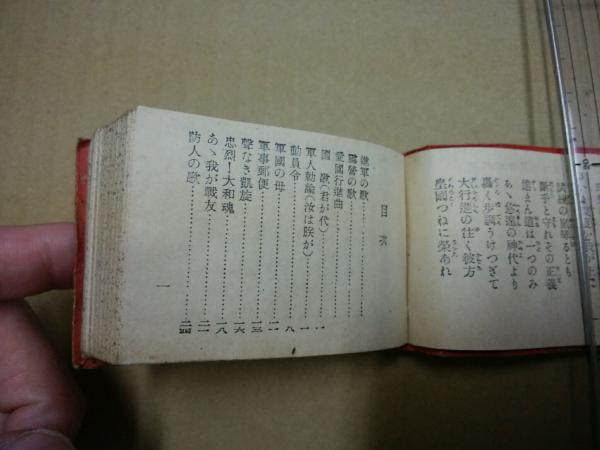 大行進の往く彼方
皇國つねに榮あれ
轟く歩調うけつぎて
あゝ悠遠の神代より
進まん道は一つのみ
斷乎と守れその正義
目次
進軍の歌
露營の歌
愛國行進曲
國歌(君が代) 一
軍人勅諭(汝は朕が) 一
動員令 八
軍國の母 一一
軍事郵便 一三
聲なき凱旋 一六
忠烈!大和魂 一八
あゝ我が戰友 二一
防人の歌 二四
一